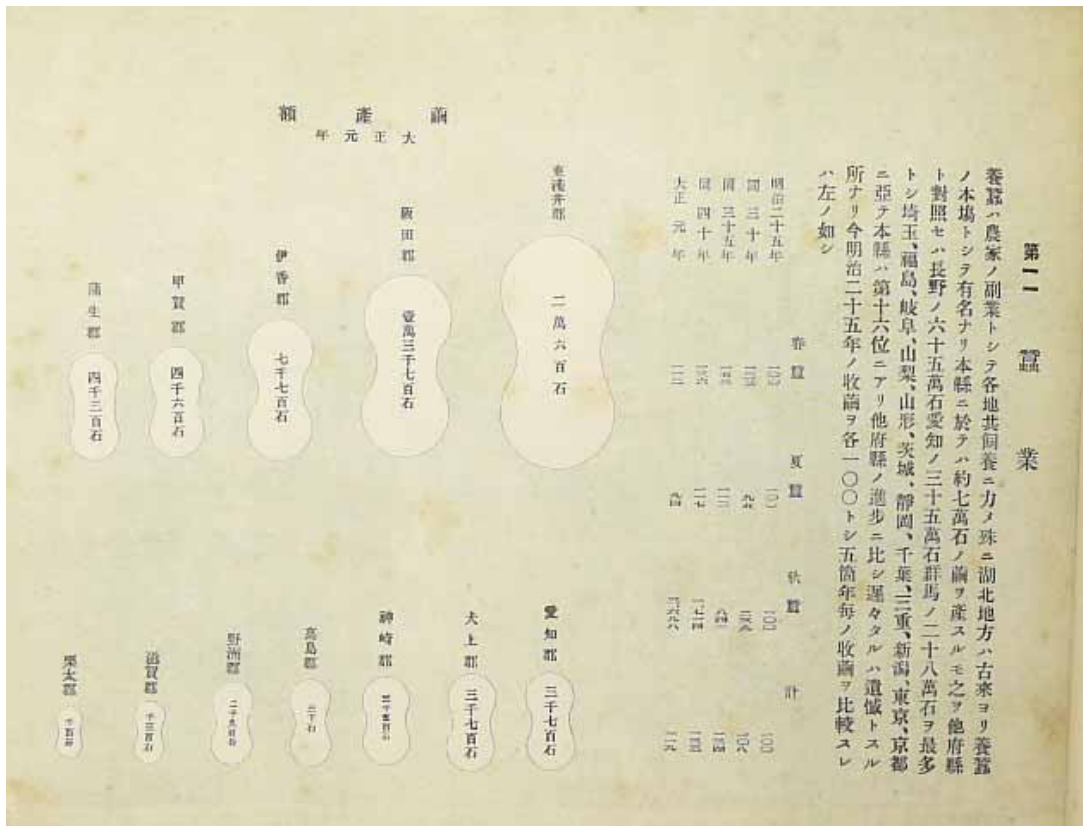 第一一　蠶業
養蠶ハ農家ノ副業トシテ各地共飼養ニ力メ殊ニ湖北地方ハ古來ヨリ養蠶
ノ本場トシテ有名ナリ本縣ニ於テハ約七萬石ノ繭ヲ產スルモ之ヲ他府縣
ト對照セハ長野ノ六十五萬石愛知ノ三十五萬石群馬ノ二十八萬石ヲ最多
トシ埼玉、福島、岐阜、山梨、山形、茨城、靜岡、千葉、三重、新潟、東京、京都
ニ亞テ本縣ハ第十六位ニアリ他府縣ノ進步ニ比シ遲々タルハ遺憾トスル
所ナリ今明治二十五年ノ收繭ヲ各一〇〇トシ五箇年每ノ收繭ヲ比較スレ
ハ左ノ如シ
春蠶　夏蠶　秋蠶　計
明治二十五年　一〇〇　一〇〇　一〇〇　一〇〇
同三十年
同三十五年
同四十年
大正元年
繭產額
大正元年
東淺井郡
二萬六百石
阪田郡
壹萬三千七百石
伊香郡
七千七百石
甲賀郡
四千六百石
蒲生郡
四千三百石
愛知郡
三千七百石
犬上郡
三千七百石
神崎郡
高島郡
野洲郡
滋賀郡
栗太郡